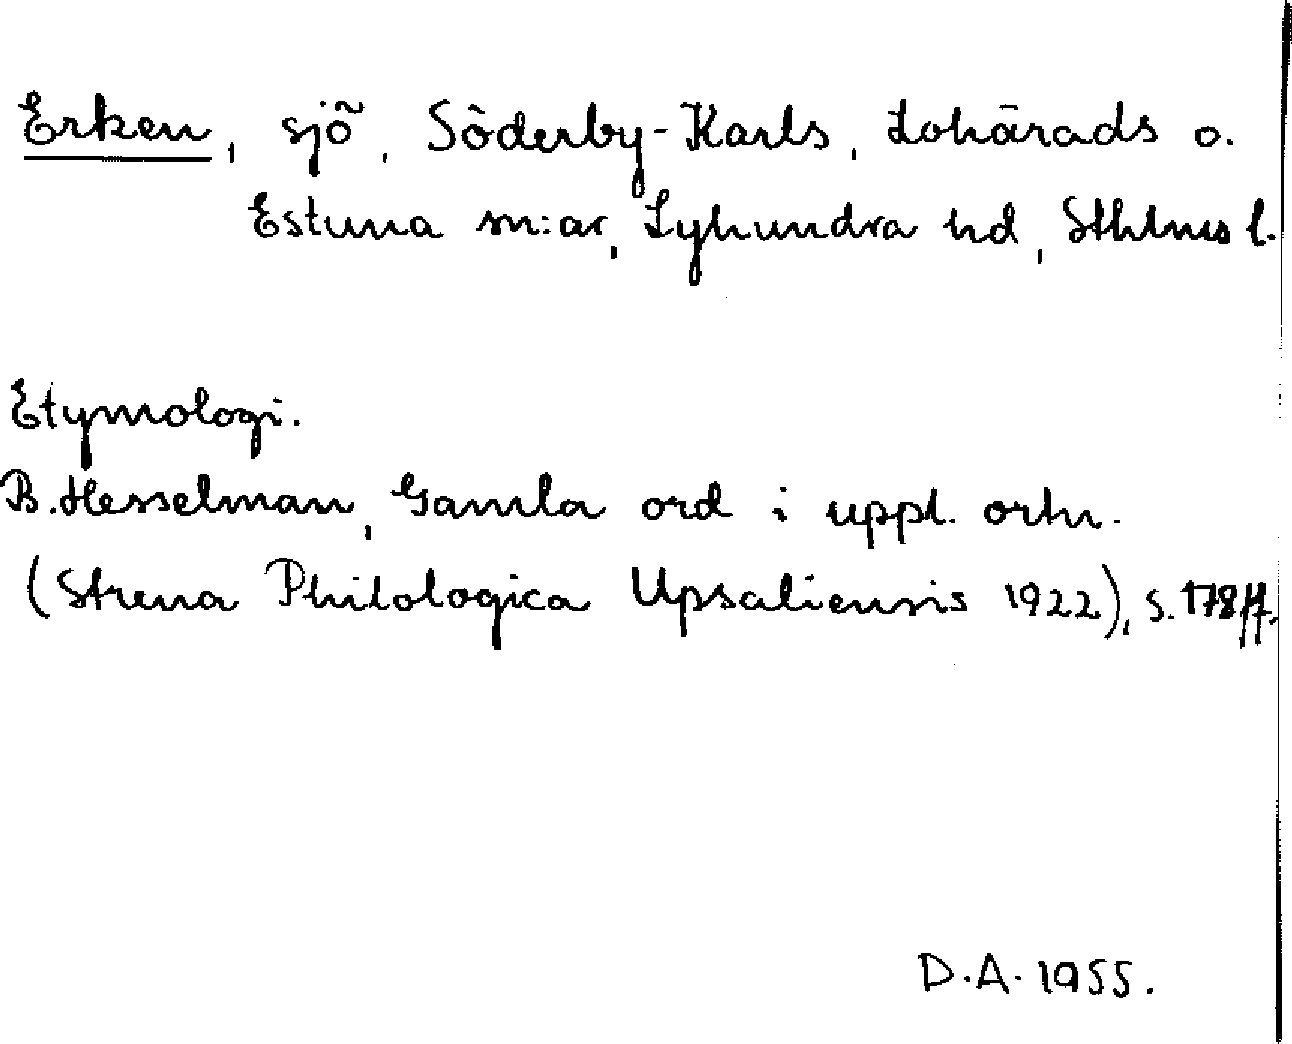 Erken, sjö, Söderby-Karls, Lohärads o.
Estuna sn:ar, Lyhundra hd, Sthlms l.
Etymologi.
B. Hesselman, Gamla ord i uppl. ortn.
(Strena Philologica Upsaliensis 1922), s. 178 ff.
D.A. 1955.